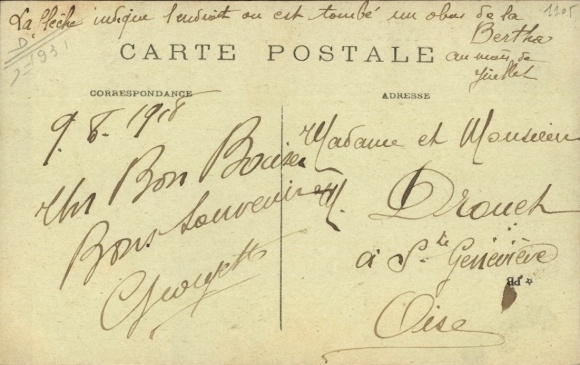 La flèche indique l'endroit ou est tombé un obus de la
Bertha
au mois de
juillet
1105
CARTE POSTALE
CORRESPONDANCE
ADRESSE
9. 8. 1918
Un Bon Baiser
Bons Souvenirs
Georgette
Madame et Monsieur
M. Drouet
à Ste Geneviève
Oise